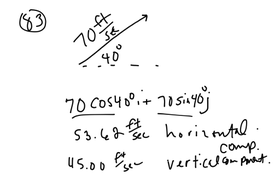 83
70 ft/sec
40°
70 cos 40° i + 70 sin 40 j
53.62 ft/sec horizontal comp.
45.00 ft/sec vertical componant.